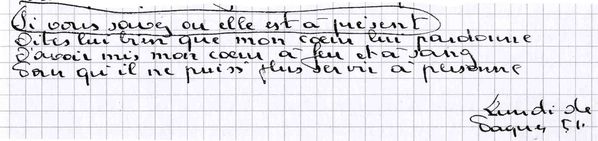 Si vous savez ou elle est à présent
Dites lui bien que mon cœur lui pardonne
D'avoir mis mon cœur à feu et à sang
Pour qu'il ne puiss' plus servir à personne
Lundi de
Paques 51.